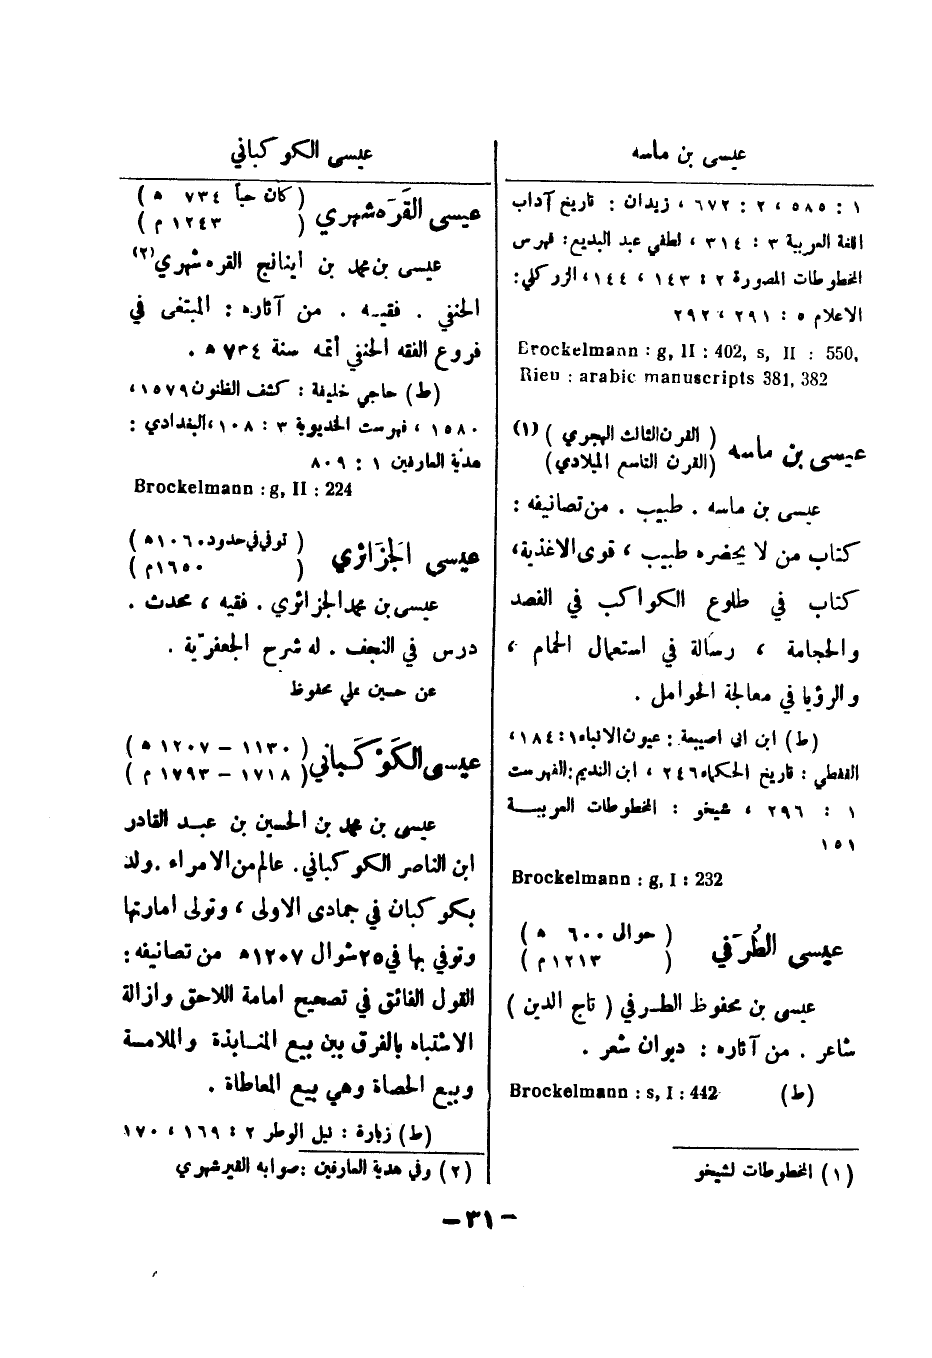 عيسى بن ماسه
١ : ٥٨٥ ، ٢ : ٦٧٢ ، زيدان : تاريخ آداب
اللغة العربية ٣ : ٣١٤ ، لطفي عبد البديع : فهرس
المخطوطات المصورة ٢ : ١٤٣ ، ١٤٤ ، الزركلي :
الاعلام ٥ : ٢٩١ ، ٢٩٢
Brockelmann : g, II : 402, s, II : 550,
Rieu : arabic manuscripts 381, 382
عيسى بن ماسه ( القرن الثالث الهجري ) (١)
(القرن التاسع الميلادي)
عيسى بن ماسه . طبيب . من تصانيفه :
كتاب من لا يحضره طبيب ، قوى الاغذية ،
كتاب في طلوع الكواكب في الفصد
والحجامة ، رسالة في استعمال الحمام ،
والرؤيا في معالجة الحوامل .
(ط) ابن ابي اصيبعة : عيون الانباء ١ : ١٨٤ ،
القفطي : تاريخ الحكماء ٢٤٦ ، ابن النديم : الفهرست
١ : ٢٩٦ ، شيخو : المخطوطات العربية
١٥١
Brockelmann : g, I : 232
عيسى الطُرَفي ( حوالى ٦٠٠ ه )
( ١٢١٣ م )
عيسى بن محفوظ الطرفي ( تاج الدين )
شاعر . من آثاره : ديوان شعر .
(ط) Brockelmann : s, I : 442
(١) المخطوطات لشيخو
عيسى الكوكباني
عيسى القَرَه شهري ( كان حياً ٧٣٤ ه )
( ١٢٤٣ م )
عيسى بن محمد بن اينانج القره شهري (٢)
الحنفي . فقيه . من آثاره : المبتغى في
فروع الفقه الحنفي أتمه سنة ٧٣٤ ه .
(ط) حاجي خليفة : كشف الظنون ١٥٧٩ ،
١٥٨٠ ، فهرست الخديوية ٣ : ١٠٨ ، البغدادي :
هدية العارفين ١ : ٨٠٩
Brockelmann : g, II : 224
عيسى الجَزَائري ( توفي في حدود ١٠٦٠ ه )
( ١٦٥٠ م )
عيسى بن محمد الجزائري . فقيه ، محدث .
درس في النجف . له شرح الجعفريّة .
عن حسين علي محفوظ
عيسى الكَوْكَباني ( ١١٣٠ – ١٢٠٧ ه )
( ١٧١٨ – ١٧٩٣ م )
عيسى بن محمد بن الحسين بن عبد القادر
ابن الناصر الكوكباني . عالم من الامراء . ولد
بكوكبان في جمادى الاولى ، وتولى امارتها
وتوفي بها في ٢٥ شوال ١٢٠٧ ه من تصانيفه :
القول الفائق في تصحيح امامة اللاحق وازالة
الاشتباه بالفرق بين بيع المنابذة والملامسة
وبيع الحصاة وهي بيع المعاطاة .
(ط) زبارة : نيل الوطر ٢ : ١٦٩ ، ١٧٠
(٢) وفي هدية العارفين : صوابه القيرشهري
– ٣١ –